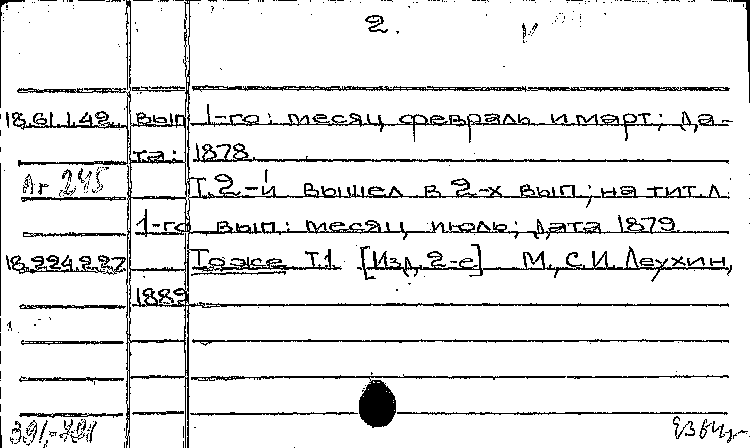 2.
18.61.1.42. вып 1-го: месяц февраль и март; да-
та: 1878.
Аг 245 Т. 2-й вышел в 2-х вып.; на тит. л.
1-го вып.: месяц июль; дата 1879.
18.224.2.27 Тоже Т.1 [Изд. 2-е] М., С.И. Леухин,
1889
391,-791